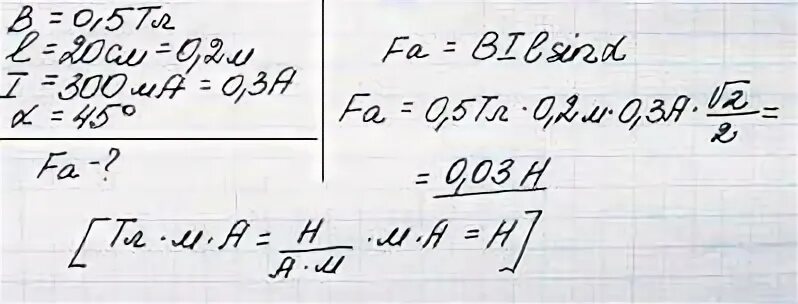 B = 0,5Тл
l = 20см = 0,2м
I = 300мА = 0,3А
α = 45°
Fа - ?
Fа = BIlsinα
Fа = 0,5Тл · 0,2м · 0,3А · √2/2 =
= 0,03 Н
[Тл · м · А = Н/(А · м) · м · А = Н]